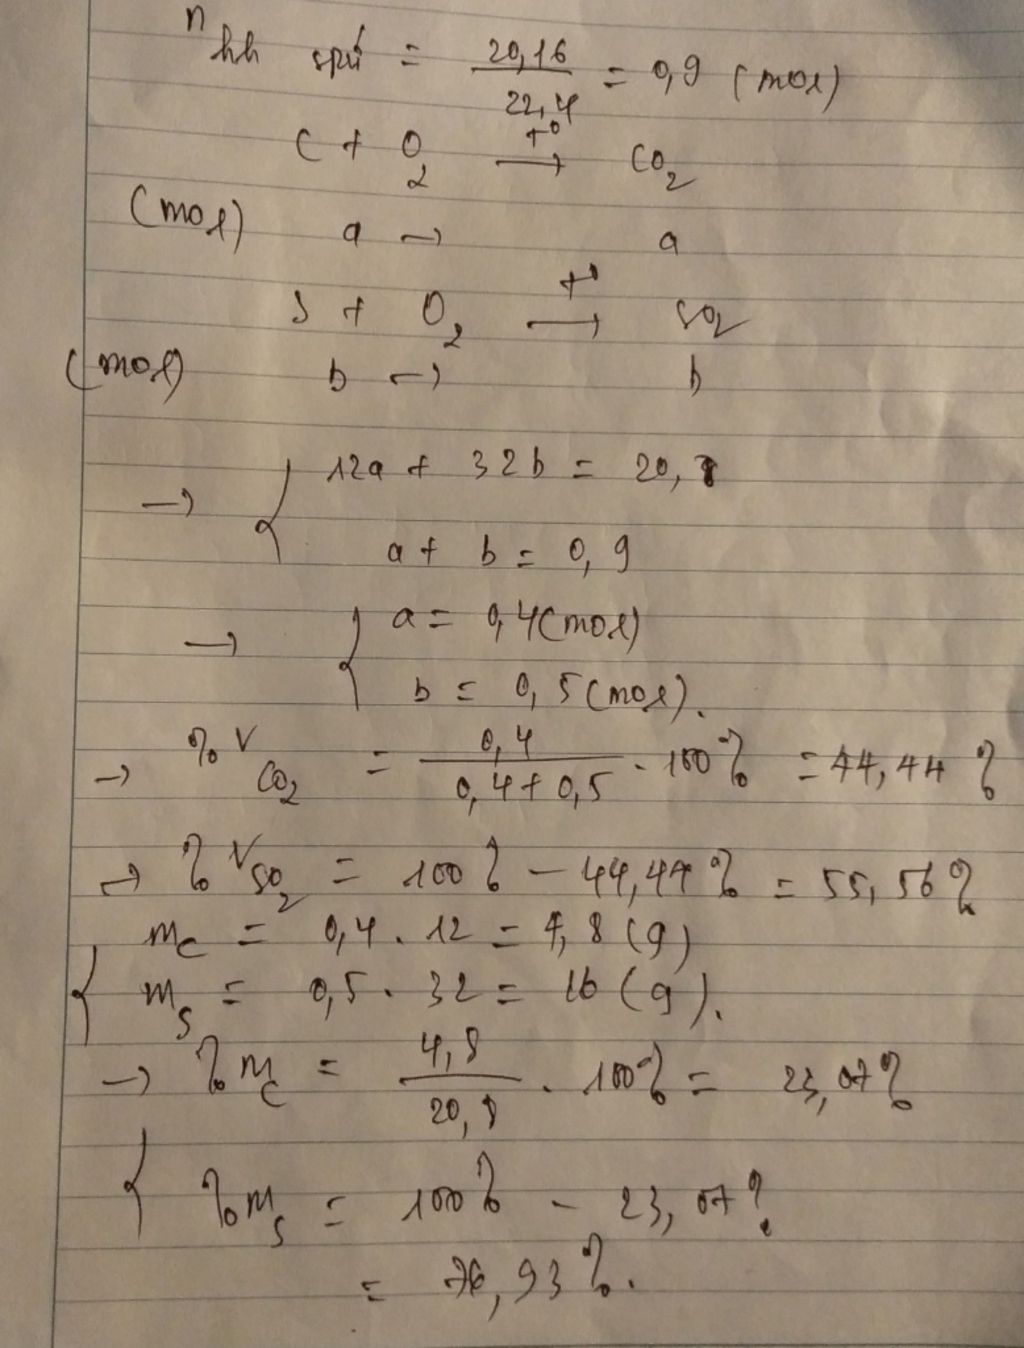 n hh spứ = 20,16 / 22,4 = 0,9 (mol)
C + O2 →(t°) CO2
(mol) a → a
S + O2 →(t°) SO2
(mol) b → b
→ { 12a + 32b = 20,8
a + b = 0,9
→ { a = 0,4 (mol)
b = 0,5 (mol).
→ %V CO2 = 0,4 / 0,4 + 0,5 . 100% = 44,44%
→ %V SO2 = 100% - 44,44% = 55,56%
{ mC = 0,4 . 12 = 4,8 (g)
mS = 0,5 . 32 = 16 (g).
→ %mC = 4,8 / 20,8 . 100% = 23,07%
{ %mS = 100% - 23,07%
= 76,93%.